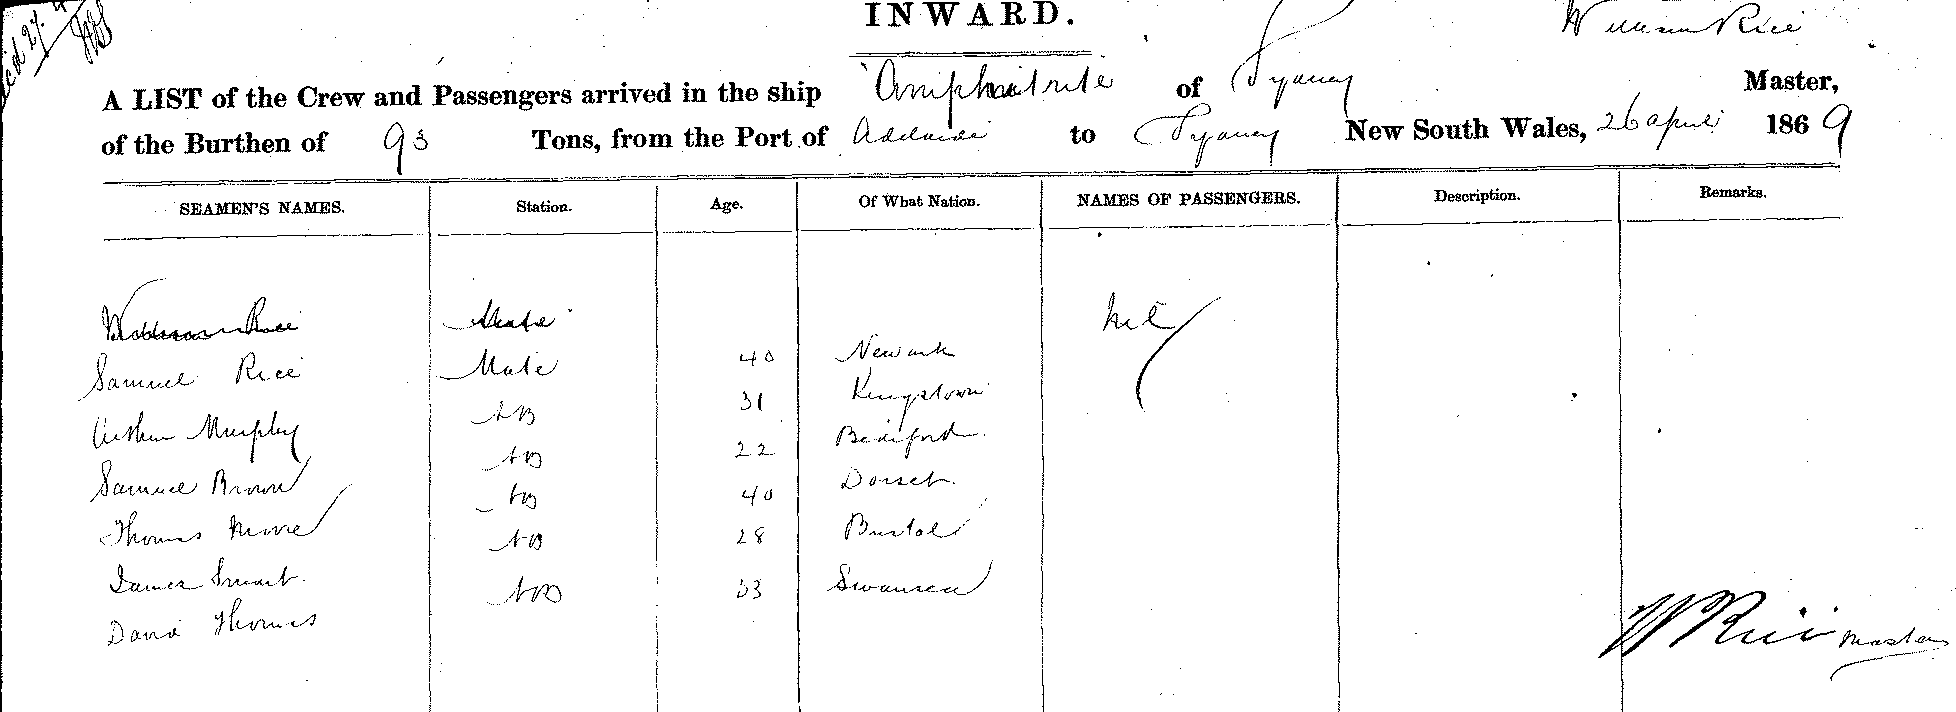 INWARD.
William Rice
A LIST of the Crew and Passengers arrived in the ship Amphitrite of Sydney Master,
of the Burthen of 93 Tons, from the Port of Adelaide to Sydney New South Wales, 26 April 1869
SEAMEN'S NAMES. Station. Age. Of What Nation. NAMES OF PASSENGERS. Description. Remarks.
William Rice Mate Nil
Samuel Rice Mate 40 Newark
Arthur Murphy AB 31 Kingstown
Samuel Brown AB 22 Bediford
Thomas Moore AB 40 Dorset
James Smart AB 28 Bristol
David Thomas AB 33 Swansea
W Rice Master